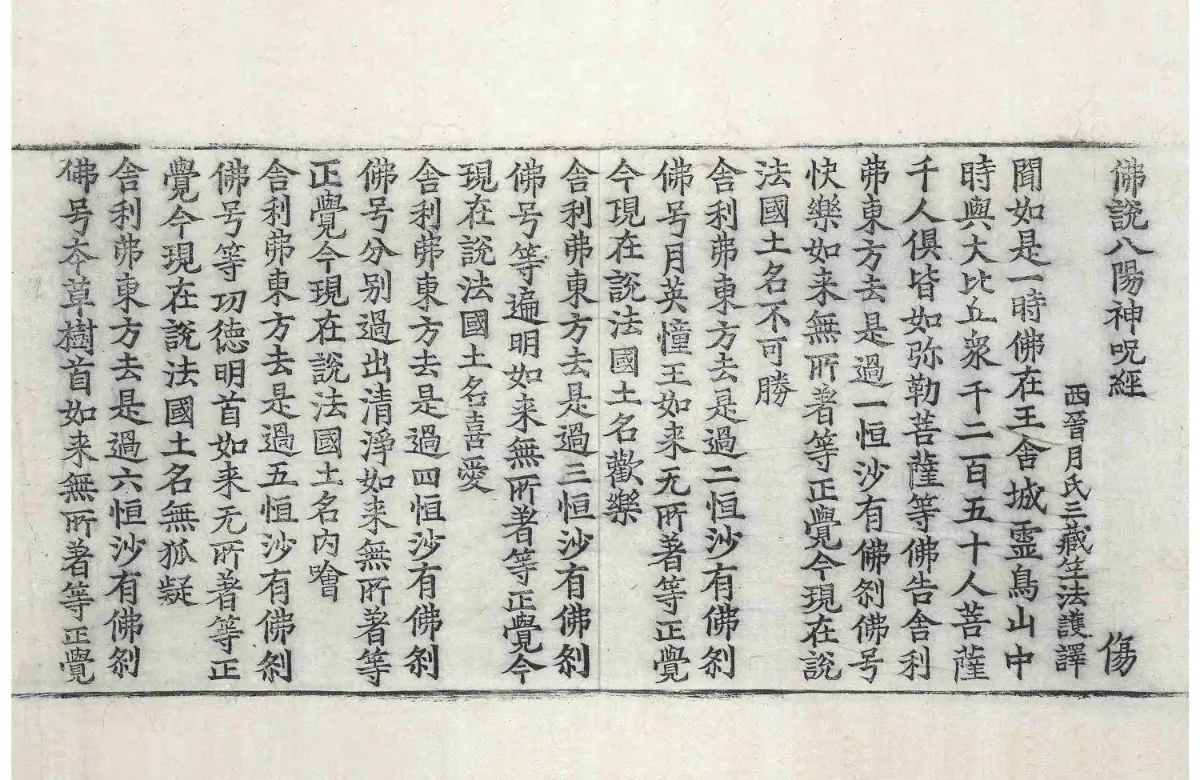 佛說八陽神呪經 傷
西晉月氏三藏竺法護譯
聞如是一時佛在王舍城霊鳥山中
時與大比丘衆千二百五十人菩薩
千人俱皆如弥勒菩薩等佛告舎利
弗東方去是過一恒沙有佛刹佛号
快樂如来無所著等正覺今現在說
法國土名不可勝
舎利弗東方去是過二恒沙有佛刹
佛号月英憧王如来无所著等正覺
今現在說法國土名歡樂
舎利弗東方去是過三恒沙有佛刹
佛号等遍明如来無所著等正覺今
現在說法國土名喜愛
舎利弗東方去是過四恒沙有佛刹
佛号分别過出清淨如来無所著等
正覺今現在說法國土名内噲
舎利弗東方去是過五恒沙有佛刹
佛号等功德明首如来无所著等正
覺今現在說法國土名無狐疑
舎利弗東方去是過六恒沙有佛刹
佛号夲草樹首如来無所著等正覺